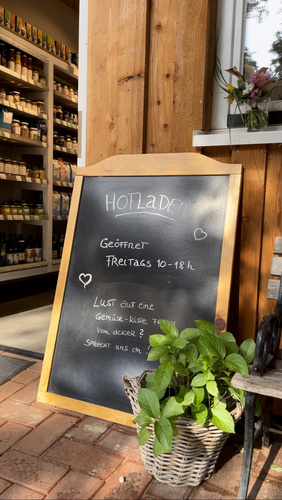 HOFLADEN
GEÖFFNET
FREITAGS 10-18 h
LUST AUF EINE
GEMÜSE-KISTE
VOM ACKER?
SPRECHT UNS AN